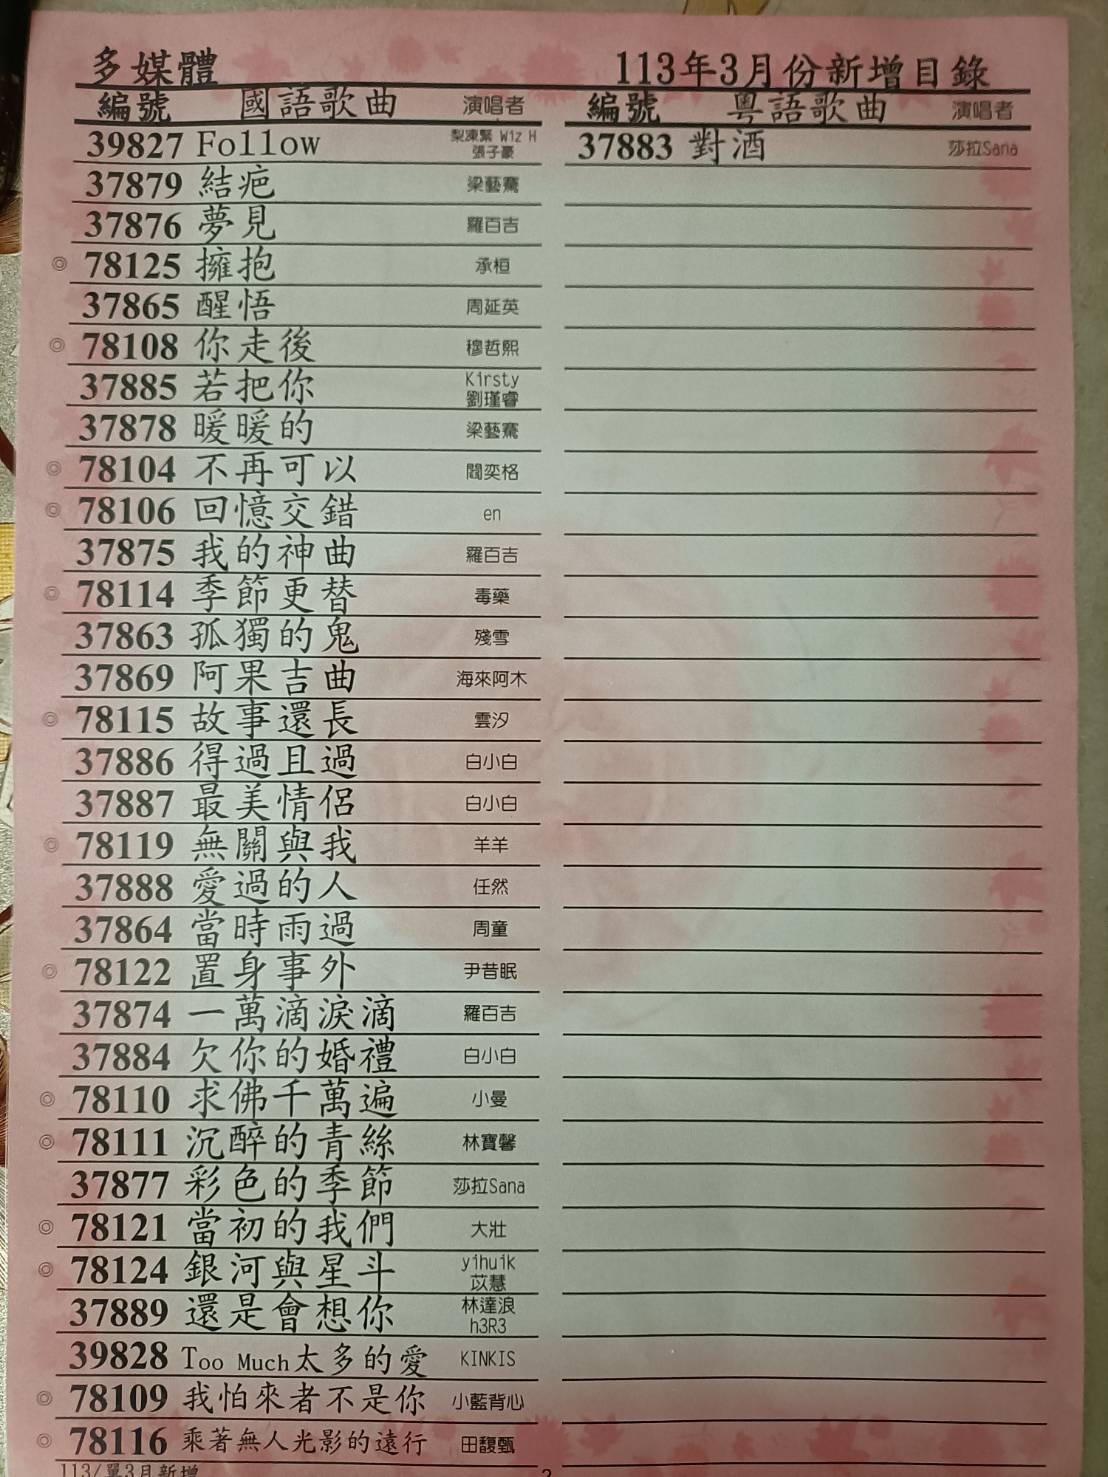 多媒體 113年3月份新增目錄
編號 國語歌曲 演唱者 編號 粵語歌曲 演唱者
39827 Follow 梨凍緊 Wiz H 張子豪 37883 對酒 莎拉Sana
37879 結疤 梁藝騫
37876 夢見 羅百吉
◎ 78125 擁抱 承桓
37865 醒悟 周延英
◎ 78108 你走後 穆哲熙
37885 若把你 Kirsty 劉瑾睿
37878 暖暖的 梁藝騫
◎ 78104 不再可以 閻奕格
◎ 78106 回憶交錯 en
37875 我的神曲 羅百吉
◎ 78114 季節更替 毒藥
37863 孤獨的鬼 殘雪
37869 阿果吉曲 海來阿木
◎ 78115 故事還長 雲汐
37886 得過且過 白小白
37887 最美情侶 白小白
◎ 78119 無關與我 羊羊
37888 愛過的人 任然
37864 當時雨過 周童
◎ 78122 置身事外 尹昔眠
37874 一萬滴淚滴 羅百吉
37884 欠你的婚禮 白小白
◎ 78110 求佛千萬遍 小曼
◎ 78111 沉醉的青絲 林寶馨
37877 彩色的季節 莎拉Sana
◎ 78121 當初的我們 大壯
◎ 78124 銀河與星斗 yihuik 苡慧
37889 還是會想你 林達浪 h3R3
39828 Too Much太多的愛 KINKIS
◎ 78109 我怕來者不是你 小藍背心
◎ 78116 乘著無人光影的遠行 田馥甄
113/單3月新增 2